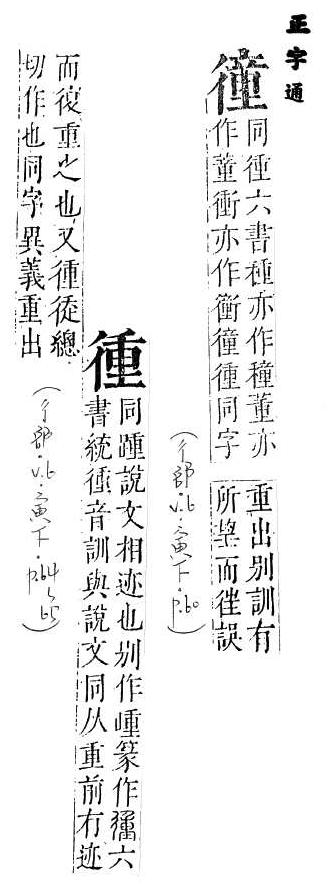 正字通
徸
同㣫六書種亦作穜董亦
作董衝亦作衝徸㣫同字
重出別訓有
所望而往誤
(彳部·v.6·之寅下·p.60)
㣫
同踵說文相迹也別作歱篆作六
書統㣫音訓與說文同从重前有迹
而復重之也又㣫從總
切作也同字異義重出
(彳部·v.6·之寅下·p.64、65)